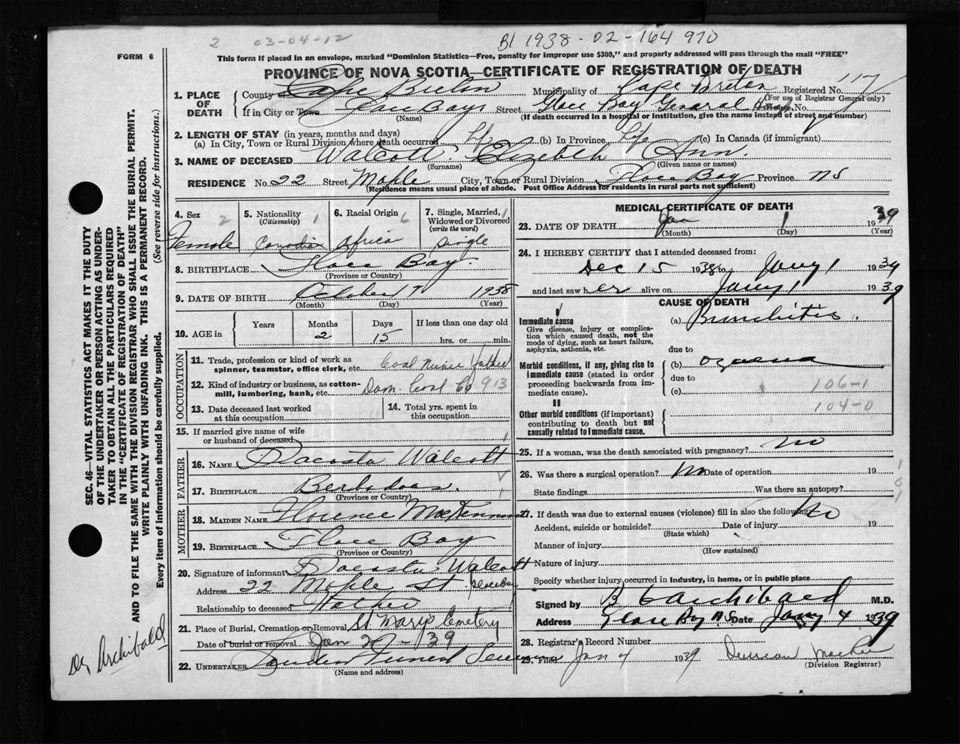 2 03-04-12
B1 1938-02-164 970
FORM 6
This form if placed in an envelope, marked "Dominion Statistics—Free, penalty for improper use $300," and properly addressed will pass through the mail "FREE"
PROVINCE OF NOVA SCOTIA—CERTIFICATE OF REGISTRATION OF DEATH
1. PLACE OF DEATH
County of Cape Breton Municipality of Cape Breton Registered No. 117
(For use of Registrar General only)
If in City or Town Glace Bay Street Glace Bay General
(Name) (If death occurred in a hospital or institution, give the name instead of street and number)
2. LENGTH OF STAY (in years, months and days)
(a) In City, Town or Rural Division where death occurred (b) In Province (c) In Canada (if immigrant)
3. NAME OF DECEASED Walcott Elizebeth Ann.
(Surname) (Given name or names)
RESIDENCE No. 22 Street Maple City, Town or Rural Division Glace Bay Province NS
(Residence means usual place of abode. Post Office Address for residents in rural parts not sufficient)
4. Sex 2 Female
5. Nationality (Citizenship) 1 Canadian
6. Racial Origin 6 Africa
7. Single, Married, Widowed or Divorced (write the word) 1 Single
8. BIRTHPLACE Glace Bay.
(Province or Country)
9. DATE OF BIRTH 1938
(Month) (Day) (Year)
10. AGE in Years Months Days If less than one day old
2 15 hrs. or min.
OCCUPATION
11. Trade, profession or kind of work as spinner, teamster, office clerk, etc. Coal Miner Father
12. Kind of industry or business, as cotton-mill, lumbering, bank, etc. Dom. Coal Co 913
13. Date deceased last worked at this occupation
14. Total yrs. spent in this occupation
15. If married give name of wife or husband of deceased
FATHER
16. NAME Dacosta Walcott
17. BIRTHPLACE Berbadoas.
(Province or Country)
MOTHER
18. MAIDEN NAME Florence MacKennon
19. BIRTHPLACE Glace Bay
(Province or Country)
20. Signature of informant Dacosta Walcott
Address 22 Maple St. Glace Bay
Relationship to deceased Father
21. Place of Burial, Cremation or Removal St Marys Cemetery
Date of burial or removal Jan 2 - 39
22. UNDERTAKER
(Name and address)
MEDICAL CERTIFICATE OF DEATH
23. DATE OF DEATH Jan 1 1939
(Month) (Day) (Year)
24. I HEREBY CERTIFY that I attended deceased from:
Dec 15 1938 to Jany 1 1939
and last saw her alive on Jany 1 1939
CAUSE OF DEATH
I
Immediate cause
Give disease, injury or complication which caused death, not the mode of dying, such as heart failure, asphyxia, asthenia, etc.
(a) Bronchitis.
due to
Morbid conditions, if any, giving rise to immediate cause (stated in order proceeding backwards from immediate cause).
(b) ozaena
due to
(c) 106-1
II
104-0
Other morbid conditions (if important) contributing to death but not causally related to immediate cause.
25. If a woman, was the death associated with pregnancy? no
26. Was there a surgical operation? no Date of operation 19
State findings Was there an autopsy?
27. If death was due to external causes (violence) fill in also the following: no
Accident, suicide or homicide? Date of injury 19
(State which)
Manner of injury
(How sustained)
Nature of injury
Specify whether injury occurred in industry, in home, or in public place
Signed by B Archibald M.D.
Address Glace Bay NS Date Jany 4 1939
28. Registrar's Record Number
29. Filed Jan 4 1939 Duncan
(Division Registrar)
SEC. 46—VITAL STATISTICS ACT MAKES IT THE DUTY
OF THE UNDERTAKER OR PERSON ACTING AS UNDER-
TAKER TO OBTAIN ALL THE PARTICULARS REQUIRED
IN THE "CERTIFICATE OF REGISTRATION OF DEATH"
AND TO FILE THE SAME WITH THE DIVISION REGISTRAR WHO SHALL ISSUE THE BURIAL PERMIT.
WRITE PLAINLY WITH UNFADING INK. THIS IS A PERMANENT RECORD.
Every item of information should be carefully supplied. (See reverse side for instructions.)
Dr Archibald